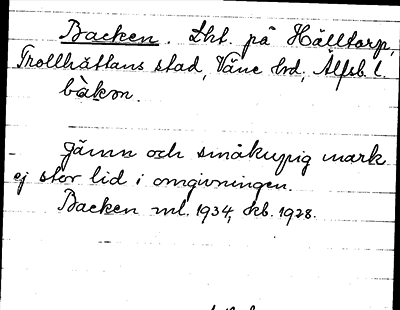 Backen. Lht. på Hälltorp,
Trollhättans stad, Väne hd, Älfsb. l.
bàkən.
Jämn och småkupig mark
ej stor lid i omgivningen.
Backen ml. 1934, kb. 1928.